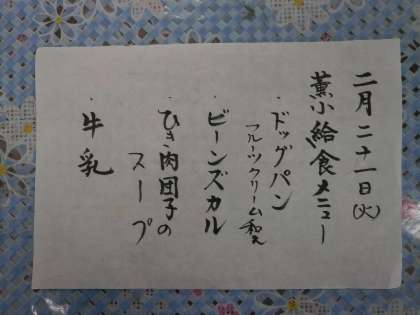 二月二十一日(火)
薫小給食メニュー
・ドッグパン
フルーツクリーム和え
・ビーンズカル
・ひき肉団子の
スープ
・牛乳